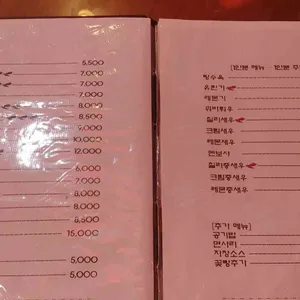 5,500
7,000
7,000
7,000
8,000
8,500
9,000
10,000
12,000
6,000
7,000
8,000
8,000
8,500
15,000
5,000
5,000
[1인분 메뉴 1인분 주
탕수육
유린기
레몬기
위비찌우
칠리새우
크림새우
레몬새우
깐쇼사
칠리중새우
크림중새우
레몬중새우
[추가 메뉴]
공기밥
면사리
짜장소스
꽃빵추가